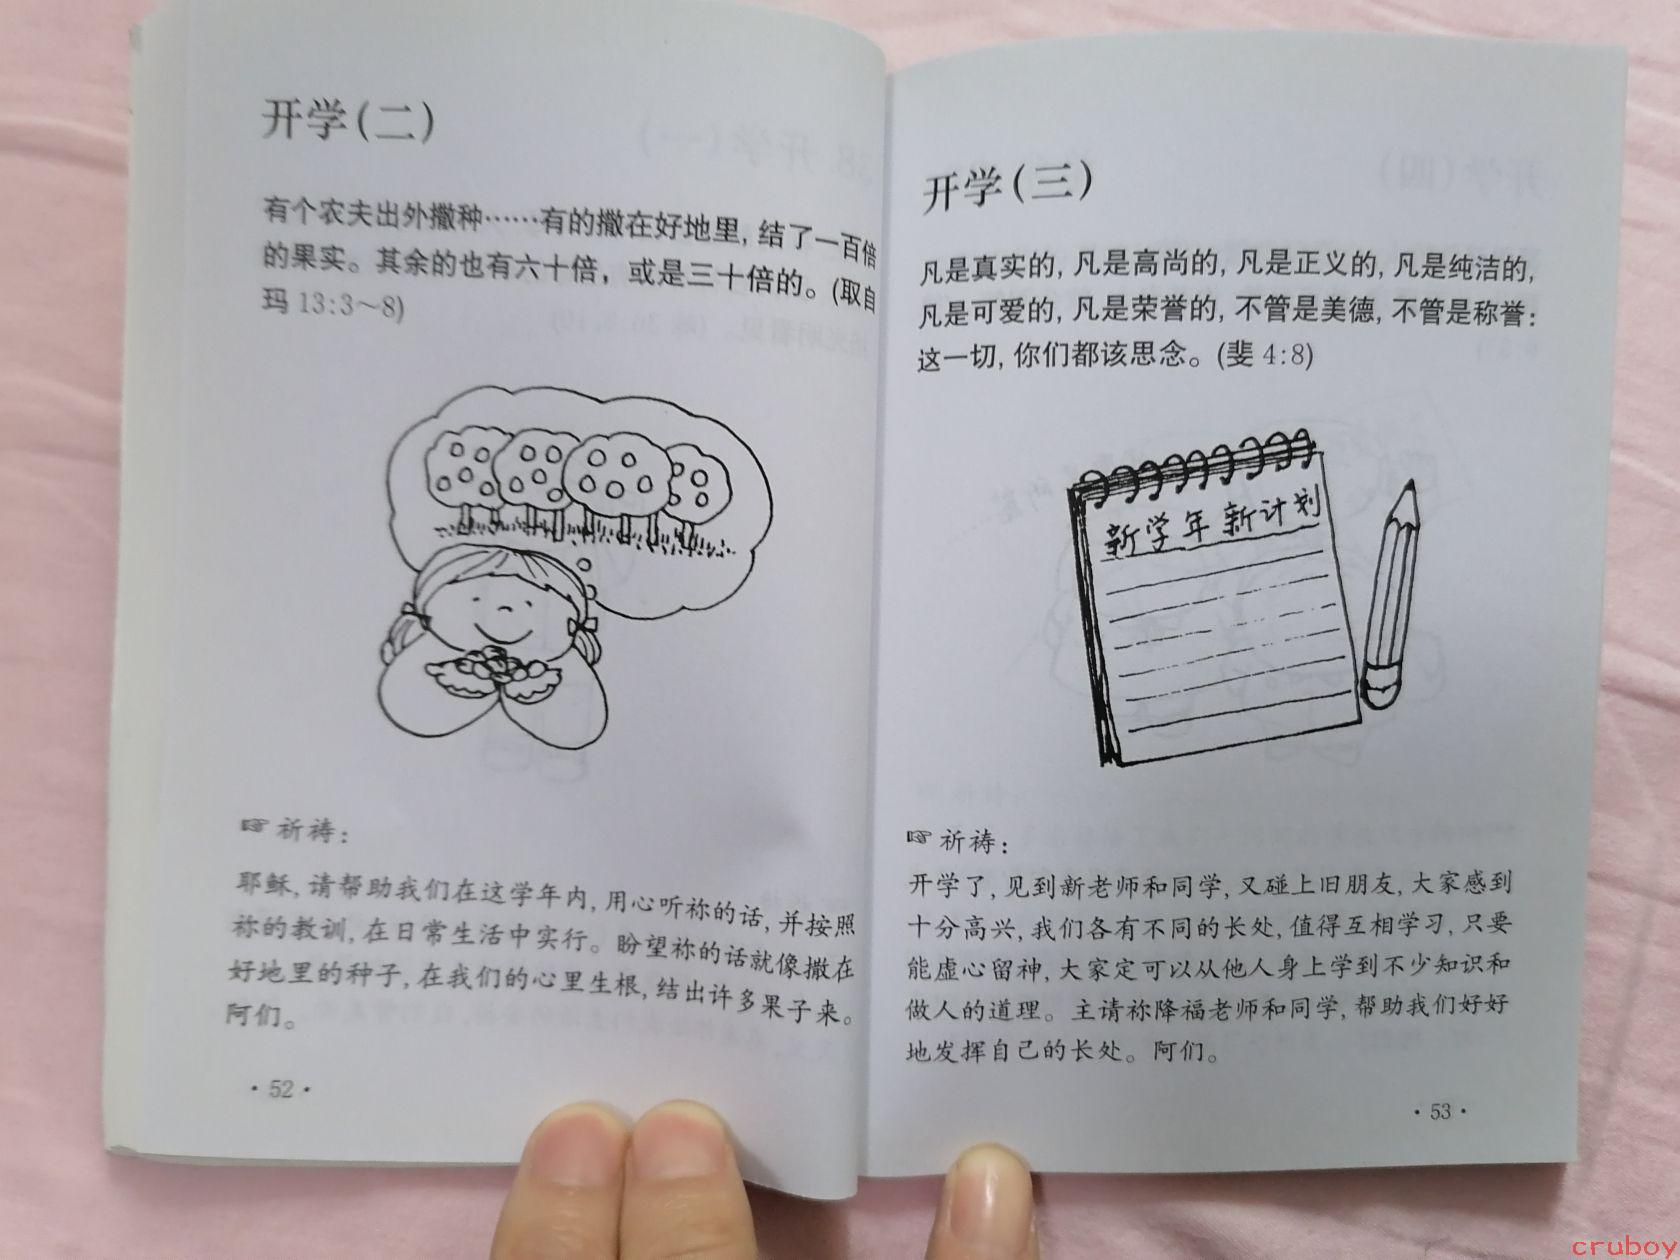 开学(二)
有个农夫出外撒种……有的撒在好地里,结了一百倍
的果实。其余的也有六十倍，或是三十倍的。(取自
玛 13:3～8)
☞祈祷:
耶稣,请帮助我们在这学年内,用心听祢的话,并按照
祢的教训,在日常生活中实行。盼望祢的话就像撒在
好地里的种子,在我们的心里生根,结出许多果子来。
阿们。
·52·
开学(三)
凡是真实的,凡是高尚的,凡是正义的,凡是纯洁的,
凡是可爱的,凡是荣誉的,不管是美德,不管是称誉:
这一切,你们都该思念。(斐 4:8)
新学年新计划
☞祈祷:
开学了,见到新老师和同学,又碰上旧朋友,大家感到
十分高兴,我们各有不同的长处,值得互相学习,只要
能虚心留神,大家定可以从他人身上学到不少知识和
做人的道理。主请祢降福老师和同学,帮助我们好好
地发挥自己的长处。阿们。
·53·
cruboy